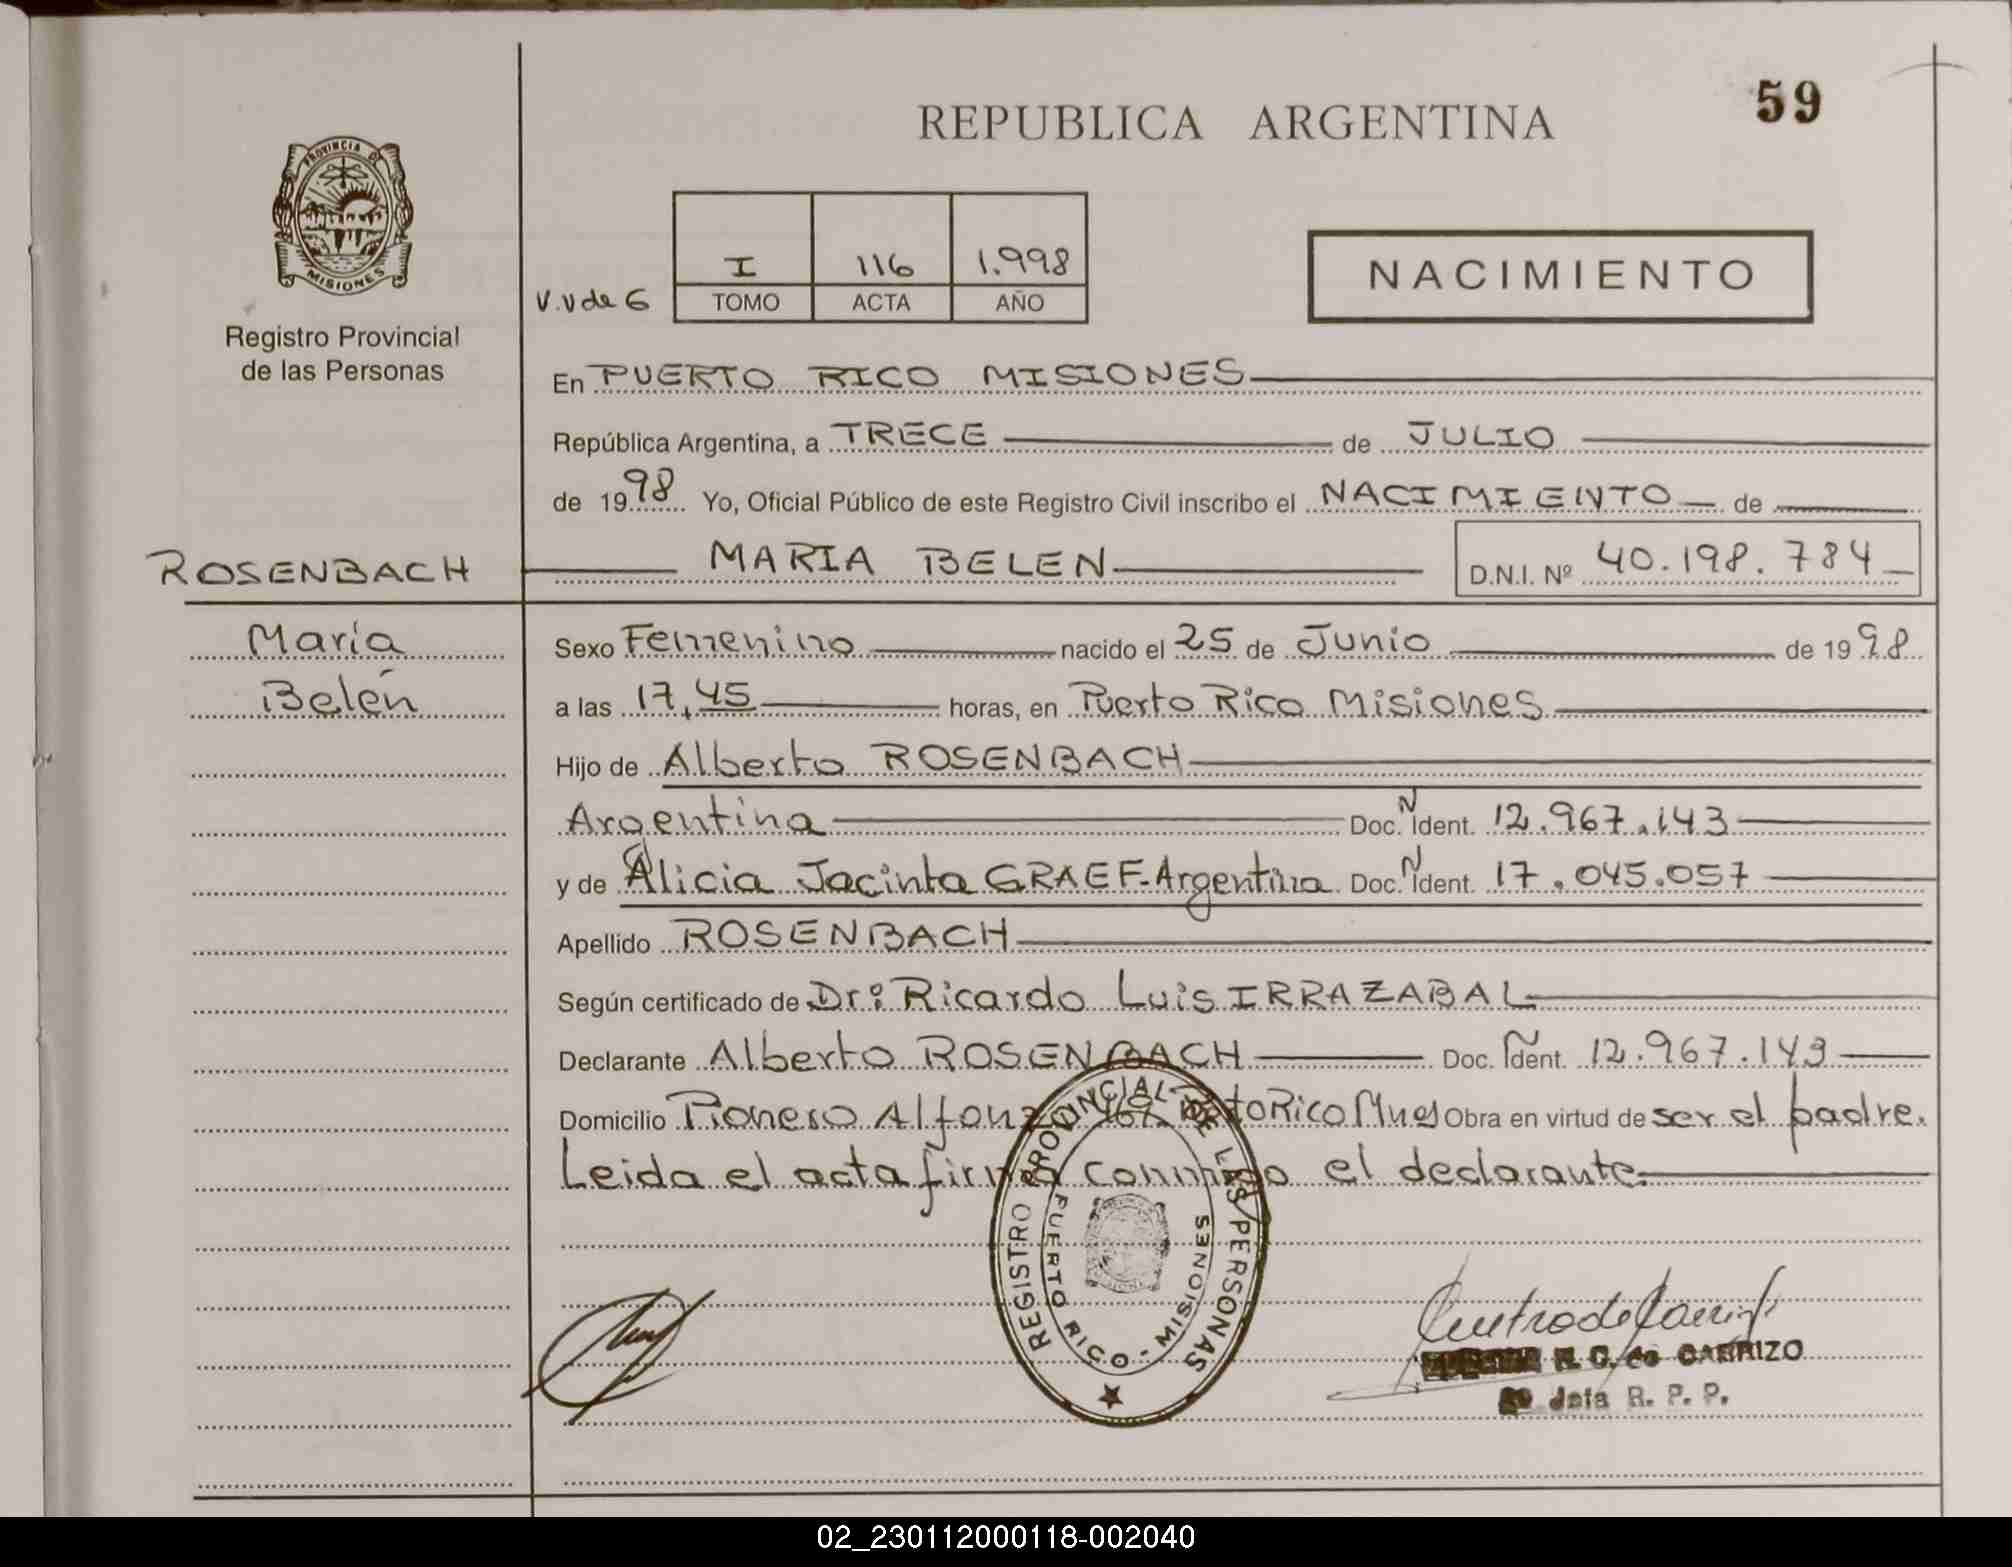 59
REPUBLICA ARGENTINA
PROVINCIA DE
MISIONES
Registro Provincial
de las Personas
I 116 1.998
V.V de G TOMO ACTA AÑO
NACIMIENTO
En PUERTO RICO MISIONES
República Argentina, a TRECE de JULIO
de 1998 Yo, Oficial Público de este Registro Civil inscribo el NACIMIENTO de
ROSENBACH MARIA BELEN D.N.I. Nº 40.198.784
María Sexo Femenino nacido el 25 de Junio de 1998
Belén a las 17,45 horas, en Puerto Rico Misiones
Hijo de Alberto ROSENBACH
Argentina Doc. Ñ Ident. 12.967.143
y de Alicia Jacinta GRAEF-Argentina Doc. Ñ Ident. 17.045.057
Apellido ROSENBACH
Según certificado de Dr: Ricardo Luis IRRAZABAL
Declarante Alberto ROSENBACH Doc. Ñ Ident. 12.967.143
Domicilio Pionero Rico Mnes Obra en virtud de ser el padre.
Leida el acta firma conmigo el declarante.
REGISTRO PROVINCIAL DE LAS PERSONAS
PUERTO RICO - MISIONES
N. G. de CARRIZO
Jefa R. P. P.
02_230112000118-002040